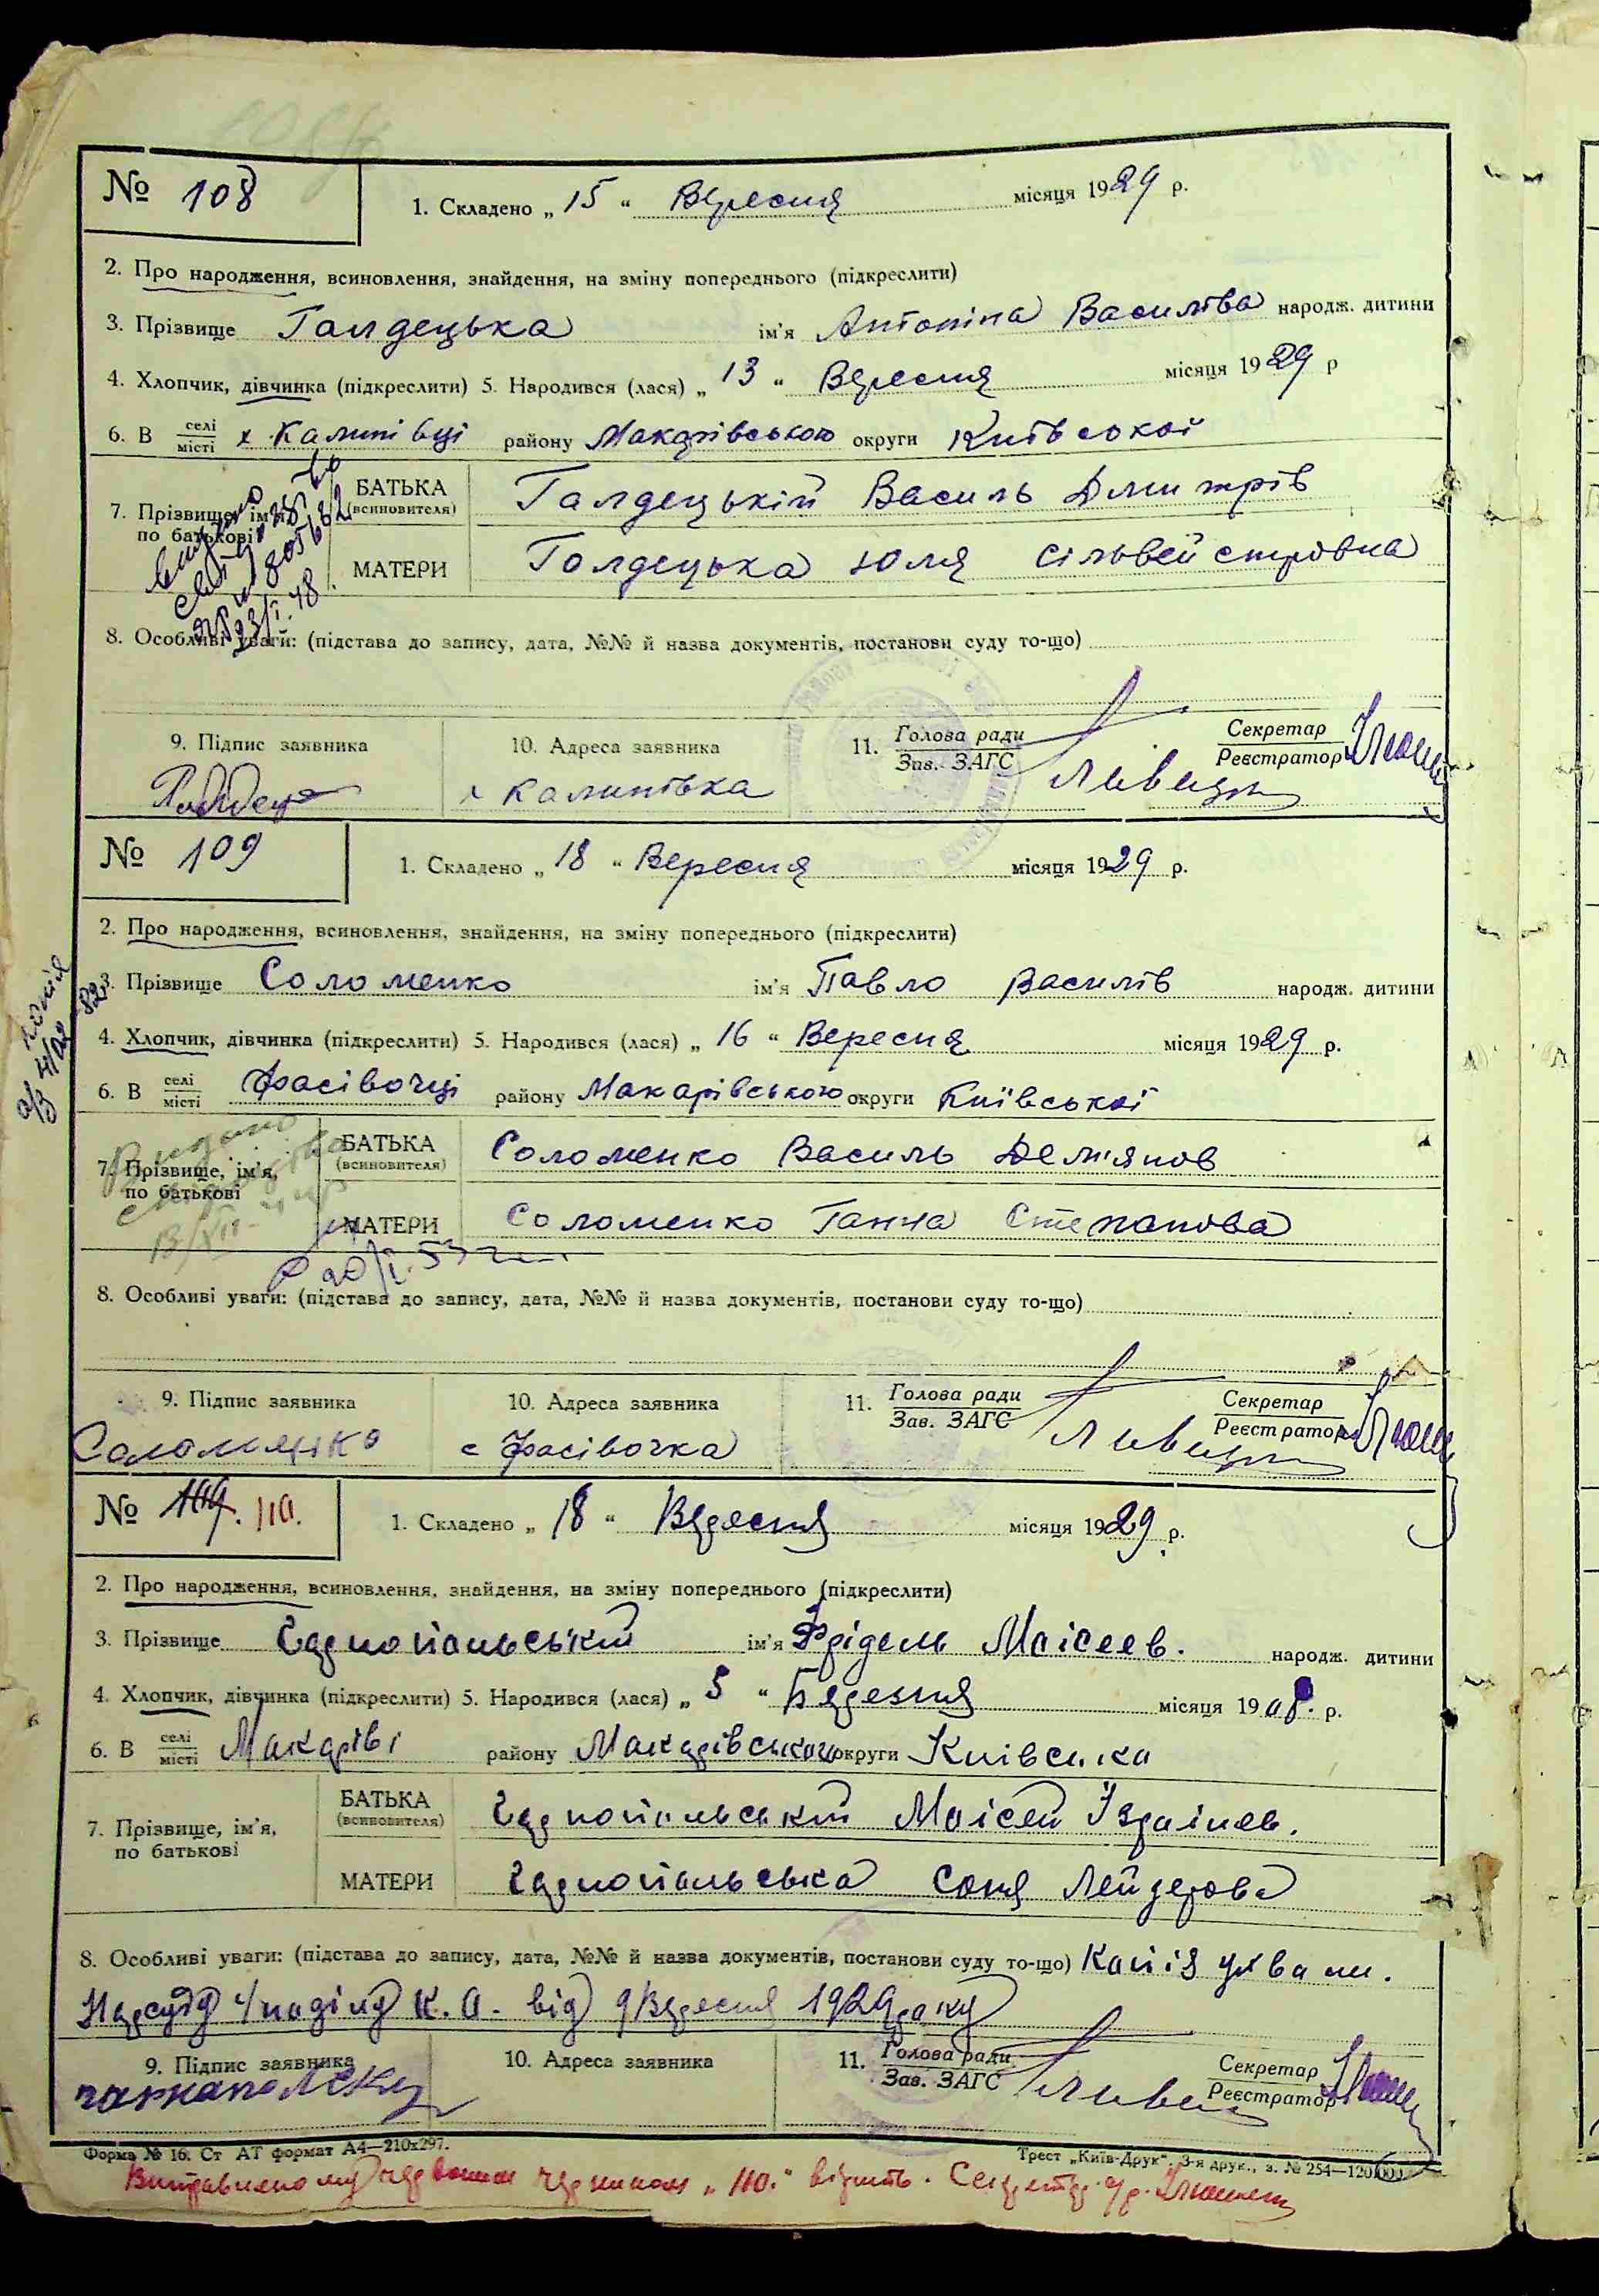 № 108
1. Складено „ 15 “ Вересня місяця 1929 р.
2. Про народження, всиновлення, знайдення, на зміну попереднього (підкреслити)
3. Прізвище Галдецька ім'я Антоніна Василіва народж. дитини
4. Хлопчик, дівчинка (підкреслити) 5. Народився (лася) „ 13 “ Вересня місяця 1929 р
6. В селі/місті х Калинівці району Макарівською округи Київської
7. Прізвище, ім'я, по батькові
БАТЬКА (всиновителя) Галдецькій Василь Дмитрів
МАТЕРИ Голдецька Юля Сільвейстровна
8. Особливі уваги: (підстава до запису, дата, №№ й назва документів, постанови суду то-що)
9. Підпис заявника
10. Адреса заявника
х Калинівка
11. Голова ради
Зав. ЗАГС
Секретар
Реєстратор
№ 109
1. Складено „ 18 “ Вересня місяця 1929 р.
2. Про народження, всиновлення, знайдення, на зміну попереднього (підкреслити)
3. Прізвище Соломенко ім'я Павло Василів народж. дитини
4. Хлопчик, дівчинка (підкреслити) 5. Народився (лася) „ 16 “ Вересня місяця 1929 р.
6. В селі/місті Фасівочці району Макарівською округи Київської
7. Прізвище, ім'я, по батькові
БАТЬКА (всиновителя) Соломенко Василь Дем'янов
МАТЕРИ Соломенко Ганна Степанова
8. Особливі уваги: (підстава до запису, дата, №№ й назва документів, постанови суду то-що)
9. Підпис заявника
10. Адреса заявника
с Фасівочка
11. Голова ради
Зав. ЗАГС
Секретар
Реєстратор
№ 110.
1. Складено „ 18 “ Вересня місяця 1929 р.
2. Про народження, всиновлення, знайдення, на зміну попереднього (підкреслити)
3. Прізвище Тарнопольський ім'я Фрідель Моісеев. народж. дитини
4. Хлопчик, дівчинка (підкреслити) 5. Народився (лася) „ 5 “ Березня місяця 1908. р.
6. В селі/місті Макарові району Макарівського округи Київська
7. Прізвище, ім'я, по батькові
БАТЬКА (всиновителя) Тарнопольський Моісей Ізраілев.
МАТЕРИ Тарнопольська Соня Лейзерова
8. Особливі уваги: (підстава до запису, дата, №№ й назва документів, постанови суду то-що) Копія ухвали.
Нарсуда 4 поділу К. О. від 9 Вересня 1929 року
9. Підпис заявника
10. Адреса заявника
11. Голова ради
Зав. ЗАГС
Секретар
Реєстратор
Форма № 16. Ст АТ формат А4—210х297.
Трест „Київ-Друк“. 3-я друк., з. № 254—120.000
Виправленому червоним чернилом „110.“ вірить. Секретар